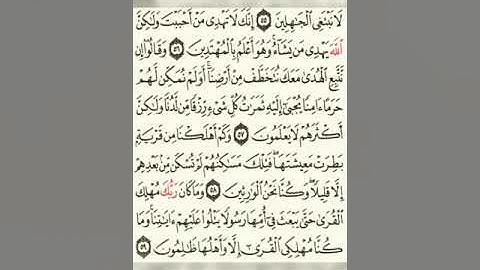 لَا نَبْتَغِي الْجَاهِلِينَ ٥٥ إِنَّكَ لَا تَهْدِي مَنْ أَحْبَبْتَ وَلَٰكِنَّ
اللَّهَ يَهْدِي مَن يَشَاءُ ۚ وَهُوَ أَعْلَمُ بِالْمُهْتَدِينَ ٥٦ وَقَالُوا إِن
نَّتَّبِعِ الْهُدَىٰ مَعَكَ نُتَخَطَّفْ مِنْ أَرْضِنَا ۚ أَوَلَمْ نُمَكِّن لَّهُمْ
حَرَمًا آمِنًا يُجْبَىٰ إِلَيْهِ ثَمَرَاتُ كُلِّ شَيْءٍ رِّزْقًا مِّن لَّدُنَّا وَلَٰكِنَّ
أَكْثَرَهُمْ لَا يَعْلَمُونَ ٥٧ وَكَمْ أَهْلَكْنَا مِن قَرْيَةٍ
بَطِرَتْ مَعِيشَتَهَا ۖ فَتِلْكَ مَسَاكِنُهُمْ لَمْ تُسْكَن مِّن بَعْدِهِمْ
إِلَّا قَلِيلًا ۖ وَكُنَّا نَحْنُ الْوَارِثِينَ ٥٨ وَمَا كَانَ رَبُّكَ مُهْلِكَ
الْقُرَىٰ حَتَّىٰ يَبْعَثَ فِي أُمِّهَا رَسُولًا يَتْلُو عَلَيْهِمْ آيَاتِنَا ۚ وَمَا
كُنَّا مُهْلِكِي الْقُرَىٰ إِلَّا وَأَهْلُهَا ظَالِمُونَ ٥٩